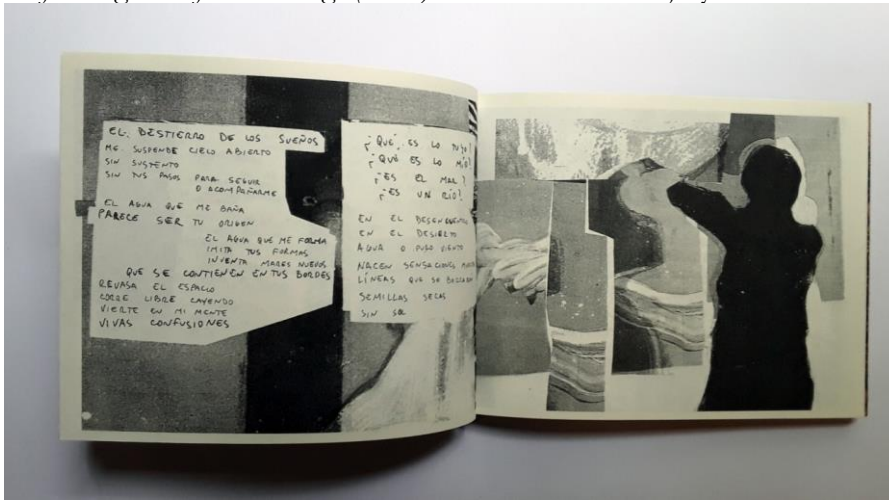 EL DESTIERRO DE LOS SUEÑOS
ME SUSPENDE CIELO ABIERTO
SIN SUSTENTO
SIN TUS PASOS PARA SEGUIR
O ACOMPAÑARME
EL AGUA QUE ME BAÑA
PARECE SER TU ORIGEN
EL AGUA QUE ME FORMA
IMITA TUS FORMAS
INVENTA MARES NUEVOS
QUE SE CONTIENEN EN TUS BORDES
REVASA EL ESPACIO
CORRE LIBRE CAYENDO
VIERTE EN MI MENTE
VIVAS CONFUSIONES
¿QUÉ ES LO TUYO?
¿QUÉ ES LO MÍO?
¿ES EL MAR?
¿ES UN RÍO?
EN EL DESENCUENTRO
EN EL DESIERTO
AGUA O PURO VIENTO
NACEN SENSACIONES
LÍNEAS QUE SE
SEMILLAS SECAS
SIN SOL